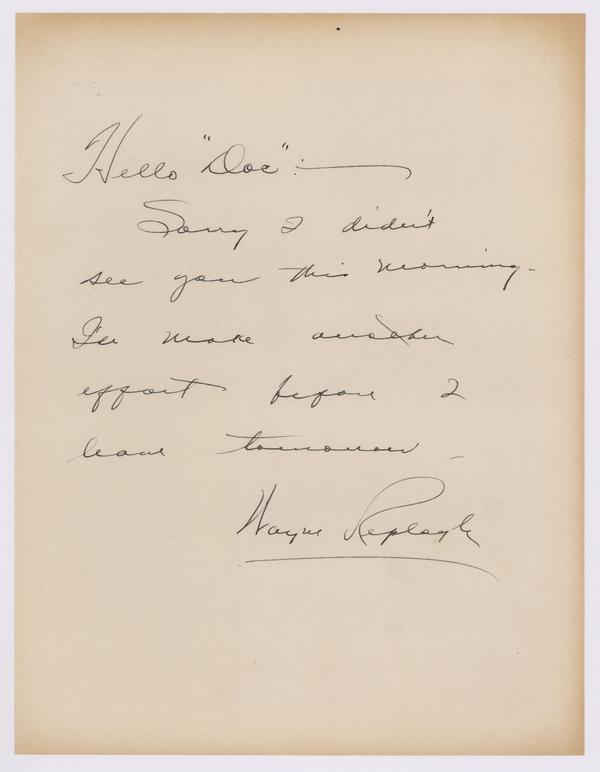 Hello "Doc":—
Sorry I didn't
see you this morning.
I'll make another
effort before I
leave tomorrow.
Wayne Replogle